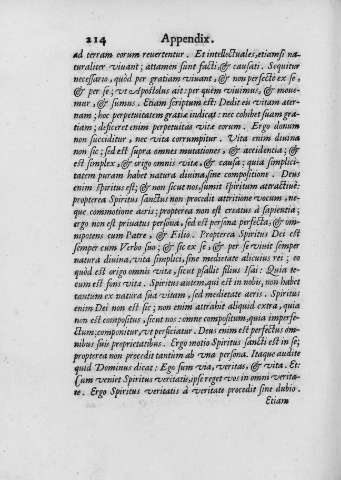 214 Appendix.
ad terram eorum revertentur. Et intellectuales, etiamsi na-
turaliter vivant; attamen sunt facti, & causati. Sequitur
necessario, quòd per gratiam vivant, & non perfecte ex se,
& per se; vt Apostolus ait: per quèm vivimus, & move-
mur, & sumus. Etiam scriptum est: Dedit eu vitam ater-
nam; hoc perpetuitatem gratia indicat: nec cohibet suam gra-
tiam; deficeret enim perpetuitas vitæ eorum. Ergo donum
non succiditur, nec vita corrumpitur. Vita enim divina
non sic; sed est supra omnes mutationes, & accidentia; &
est simplex, & origo omnis vitæ, & causa; quia simplici-
tatem puram habet natura divina, sine compositione. Deus
enim spiritus est; & non sicut nos, sumit spiritum attractivè:
propterea Spiritus sanctus non procedit attritione vocum, ne-
que commotione aeris; propterea non est creatus à sapientia;
ergo non est privatus persona, sed est persona perfecta, & om-
nipotens cum Patre, & Filio. Propterea Spiritus Dei est
semper cum Verbo suo; & sic ex se, & per se vivit semper
natura divina, vita simplici, sine medietate alicuius rei; eo
quòd est origo omnis vitæ, sicut psallit filius Isai: Quia te-
cum est fons vitæ. Spiritus autem, qui est in nobis, non habet
tantum ex natura sua vitam, sed medietate aeris. Spiritus
enim Dei non est sic; non enim attrahit aliquid extra, quia
non est compositus, sicut nos: omne compositum, quia imperfe-
ctum; componitur, vt perficiatur. Deus enim est perfectus om-
nibus suis proprietatibus. Ergo motio Spiritus sancti est in se;
propterea non procedit tantùm ab vna persona. Itaque audite
quid Dominus dicat: Ego sum via, veritas, & vita. Et:
Cum veniet Spiritus veritatis, ipse reget vos in omni verita-
te. Ergo Spiritus veritatis à veritate procedit sine dubio.
Etiam